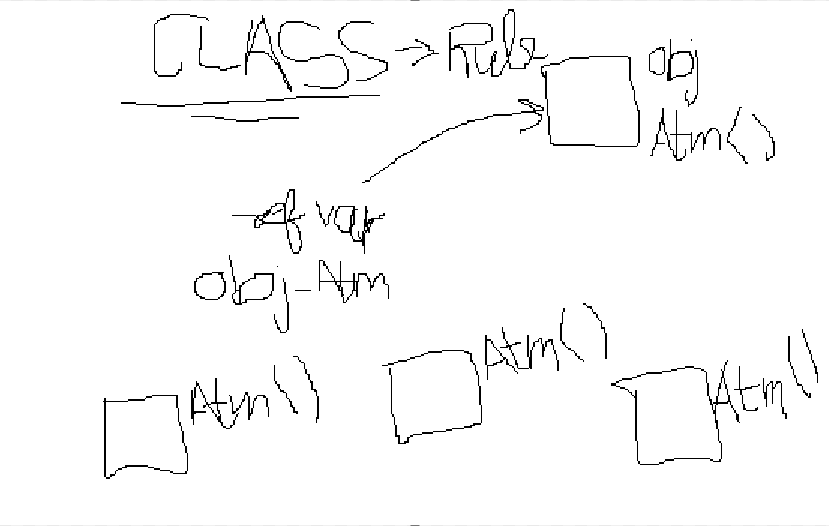 CLASS → Rules
obj
Atm()
ref var
obj_Atm
Atm()
Atm()
Atm()